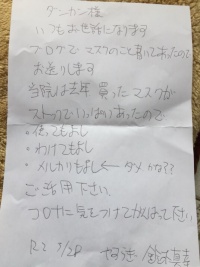 ダンカン様
いつもお世話になります
ブログでマスクのこと書いてあったので
お送りします
当院は去年買ったマスクが
ストックでいっぱいあったので
・使ってもよし
・わけてもよし
・メルカリもよし←ダメかな??
ご活用下さい
コロナに気をつけてがんばって下さい
R2 3/28 鈴木